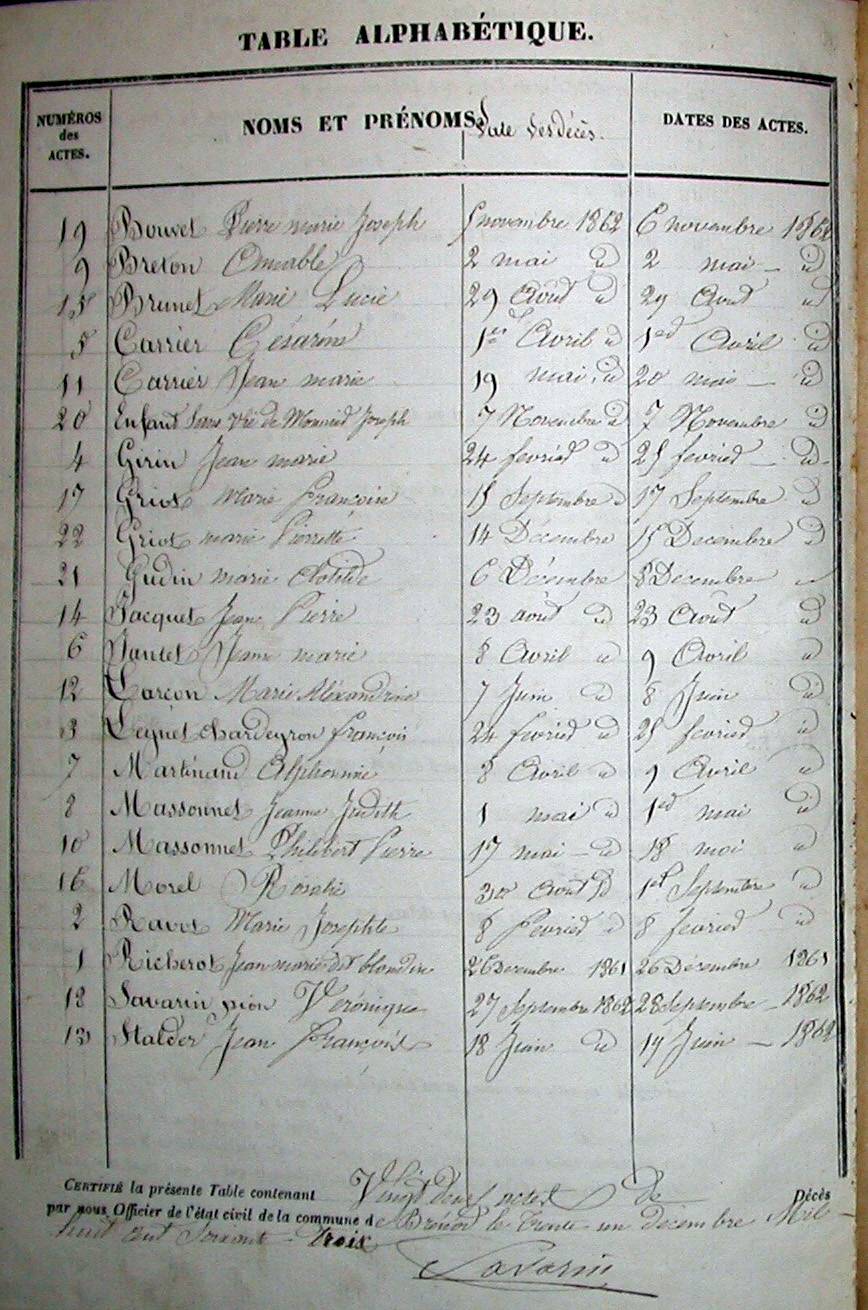 TABLE ALPHABÉTIQUE.
NUMÉROS des ACTES. NOMS ET PRÉNOMS. Date des décès. DATES DES ACTES.
19 Bouvet Pierre marie Joseph 5 novembre 1862 6 novembre 1862
9 Breton Aimable 2 mai id 2 mai id
15 Brunet Marie Lucie 29 Août id 29 Août id
5 Carrier Césarine 1er Avril id 1er Avril id
11 Carrier Jean marie 19 mai id 20 mai id
20 Enfant Sans Vie de Joseph 7 Novembre id 7 Novembre id
4 Girin Jean marie 24 fevrier id 25 fevrier id
17 Griot Marie françoise 15 Septembre id 17 Septembre id
22 Griot marie Pierrette 14 Décembre 15 Decembre id
21 Gudin marie Clotilde 6 Décembre 8 Decembre
14 Jacquet Jean Pierre 23 août id 23 Août id
6 Jantet Jeane marie 8 Avril id 9 Avril id
12 Larçon Marie Aléxandrine 7 Juin id 8 Juin id
3 chardeyron françois 24 fevrier id 25 fevrier id
7 Martinand Alphonsine 8 Avril id 9 Avril id
8 Massonnet Jeanne Judith 1 mai id 1er mai id
10 Massonnet Philibert Pierre 17 mai id 18 mai id
16 Morel Rosalie 30 Août id 1er Septembre id
2 Ravot Marie Josephte 8 fevrier id 8 fevrier id
1 Richerot Jean marie dit blondin 26 Decembre 1861 26 Décembre 1861
18 Savarin pion Véronique 27 Septembre 1862 28 Septembre 1862
13 Stalder Jean François 18 Juin id 19 Juin 1862
CERTIFIÉ la présente Table contenant Vingt deux actes de Décès
par nous Officier de l'état civil de la commune de Brénod le Trente un décembre Mil
huit cent Soixante Trois
Savarin